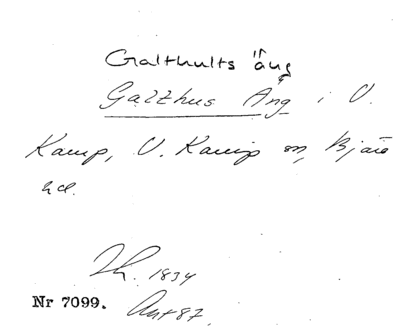 Galthults äng
Galthus Äng i V.
Karup, V. Karup sn, Bjäre
hd.
Lh. 1834
Nr 7099. Ant 87.